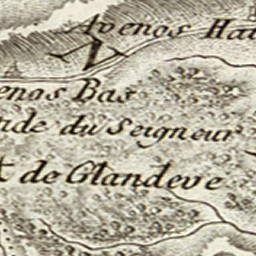 Avenos Hau
enos Bas
nde du Seigneur
t de Glandeve